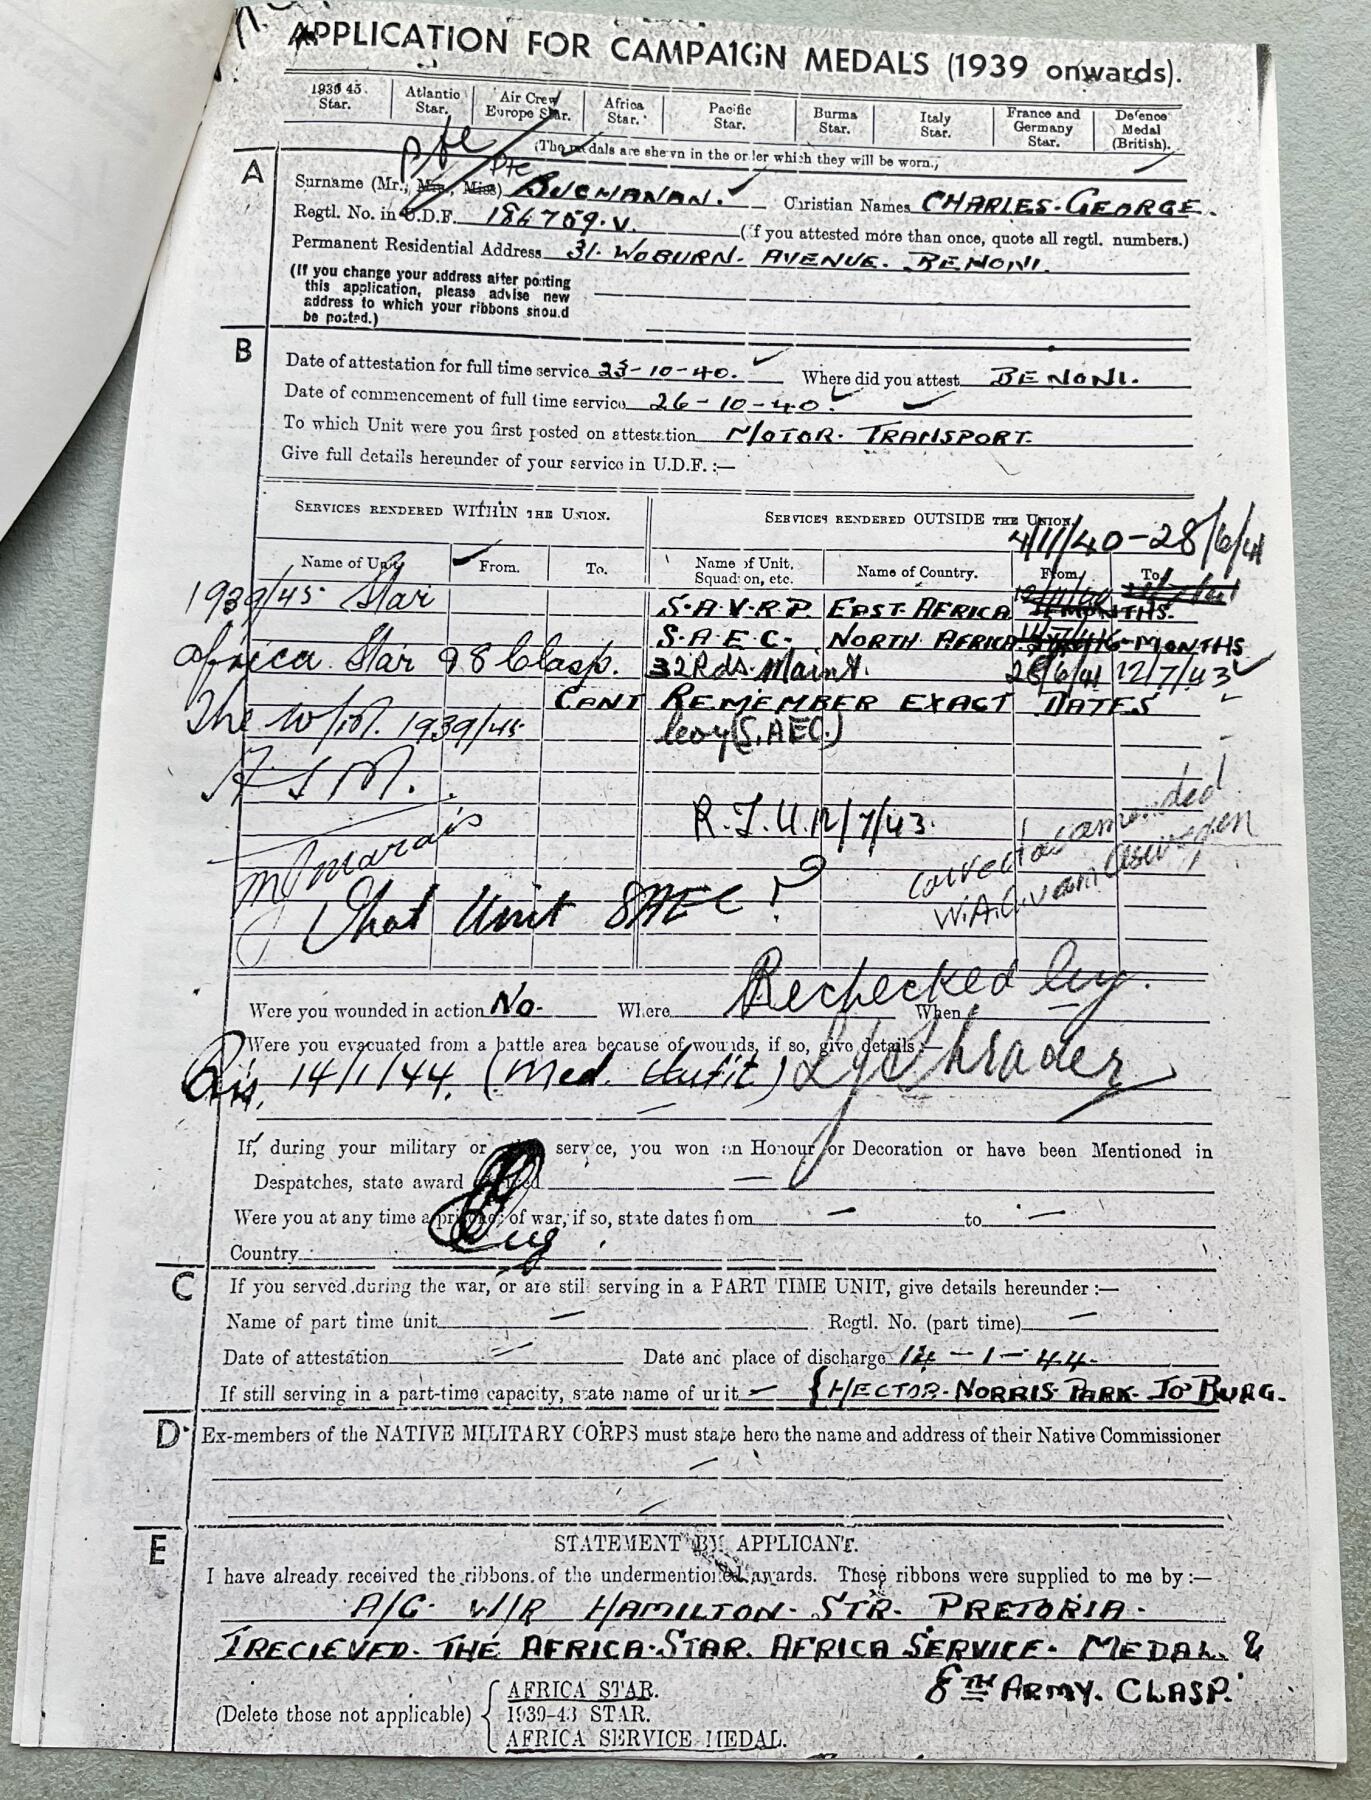 APPLICATION FOR CAMPAIGN MEDALS (1939 onwards).
1939 45. Star.
Atlantic Star.
Air Crew Europe Star.
Africa Star.
Pacific Star.
Burma Star.
Italy Star.
France and Germany Star.
Defence Medal (British).
(The medals are shewn in the order which they will be worn.)
pte
Pte
A
Surname (Mr., Mrs., Miss) BUCHANAN. Christian Names CHARLES. GEORGE.
Regtl. No. in U.D.F. 186709.V. (if you attested more than once, quote all regtl. numbers.)
Permanent Residential Address 31. WOBURN. AVENUE. BENONI.
(If you change your address after posting
this application, please advise new
address to which your ribbons should
be posted.)
B
Date of attestation for full time service 23-10-40. Where did you attest BENONI.
Date of commencement of full time service 26-10-40.
To which Unit were you first posted on attestation MOTOR. TRANSPORT.
Give full details hereunder of your service in U.D.F. :—
SERVICES RENDERED WITHIN THE UNION.
SERVICES RENDERED OUTSIDE THE UNION.
4/11/40-28/6/41
Name of Unit From. To. Name of Unit. Squadron, etc. Name of Country. From. To.
1939/45. Star S.A.V.R.P. EAST AFRICA MONTHS.
S.A.E.C. NORTH AFRICA 16-MONTHS
Africa Star & 8 Clasp. 32 Rds. Maint. 28/6/41 12/7/43
CANT REMEMBER EXACT DATES
The W/M. 1939/45. Coy (S.A.E.C.)
A.S.M.
R.T.U. 12/7/43.
Marais
Correct as amended
W.A.C. van
What Unit SAEC?
Rechecked by.
Were you wounded in action No. Where When
Were you evacuated from a battle area because of wounds, if so, give details :—
Dis. 14/1/44. (Med. Unfit)
If, during your military or service, you won an Honour or Decoration or have been Mentioned in
Despatches, state award
Were you at any time a prisoner of war, if so, state dates from — to —
Country
C
If you served during the war, or are still serving in a PART TIME UNIT, give details hereunder :—
Name of part time unit — Regtl. No. (part time) —
Date of attestation — Date and place of discharge 14-1-44.
If still serving in a part-time capacity, state name of unit — {HECTOR. NORRIS. PARK. JO'BURG.
D
Ex-members of the NATIVE MILITARY CORPS must state here the name and address of their Native Commissioner
E
STATEMENT BY APPLICANT.
I have already received the ribbons of the undermentioned awards. These ribbons were supplied to me by :—
A/G W/R HAMILTON. STR. PRETORIA.
I RECIEVED. THE AFRICA. STAR. AFRICA SERVICE. MEDAL. &
8TH ARMY. CLASP.
(Delete those not applicable)
AFRICA STAR.
1939-43 STAR.
AFRICA SERVICE MEDAL.